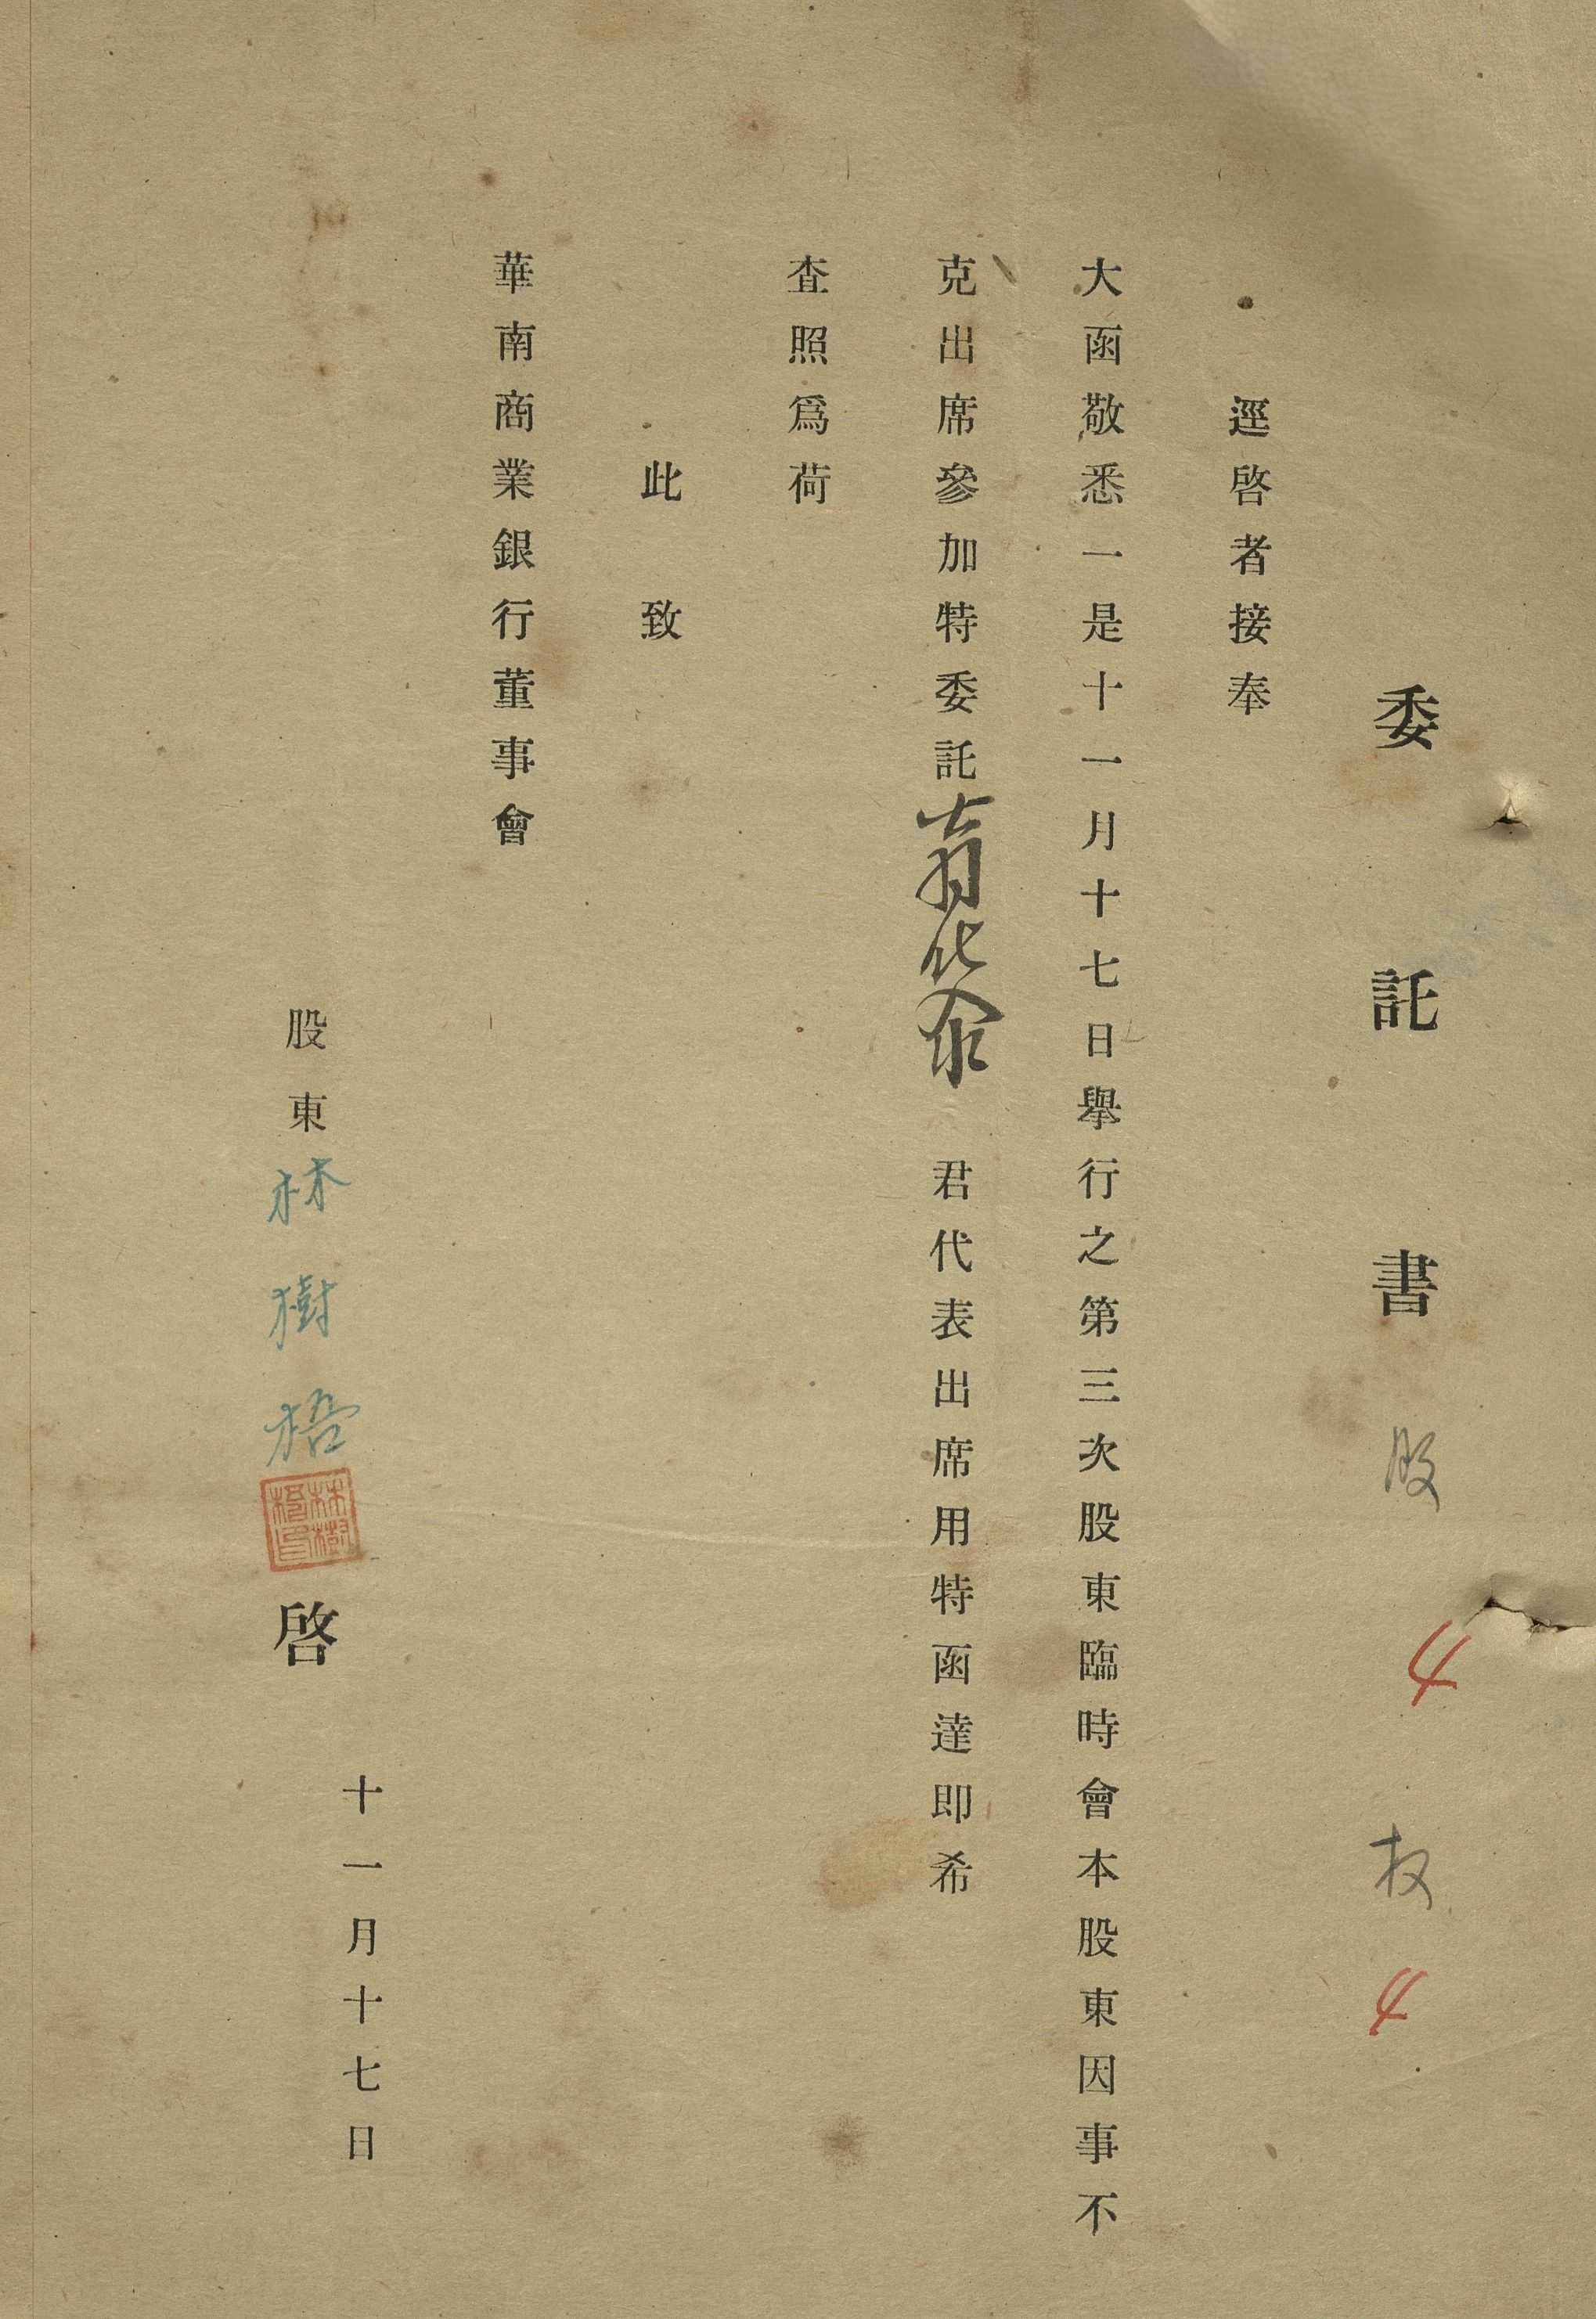 委託書 股 4 权 4
逕啓者接奉
大函敬悉一是十一月十七日舉行之第三次股東臨時會本股東因事不
克出席參加特委託 君代表出席用特函達即希
查照爲荷
此致
華南商業銀行董事會
十一月十七日
股東林樹 啓